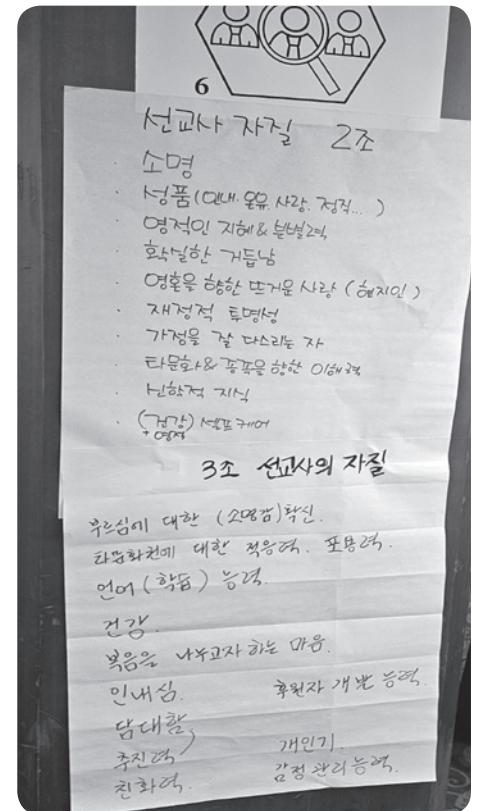 6
선교사 자질 2조
· 소명
· 성품 (인내. 온유. 사랑. 정직...)
· 영적인 지혜 & 분별력
· 확실한 거듭남
· 영혼을 향한 뜨거운 사랑 (현지인)
· 재정적 투명성
· 가정을 잘 다스리는 자
· 타문화 & 종족을 향한 이해력
· 신학적 지식
· (건강) 셀프케어
+영적
3조 선교사의 자질
부르심에 대한 (소명감) 확신.
타문화권에 대한 적응력. 포용력.
언어 (학습) 능력.
건강.
복음을 나누고자 하는 마음.
인내심. 후원자 개발 능력.
담대함,
추진력 개인기.
친화력. 감정관리능력.